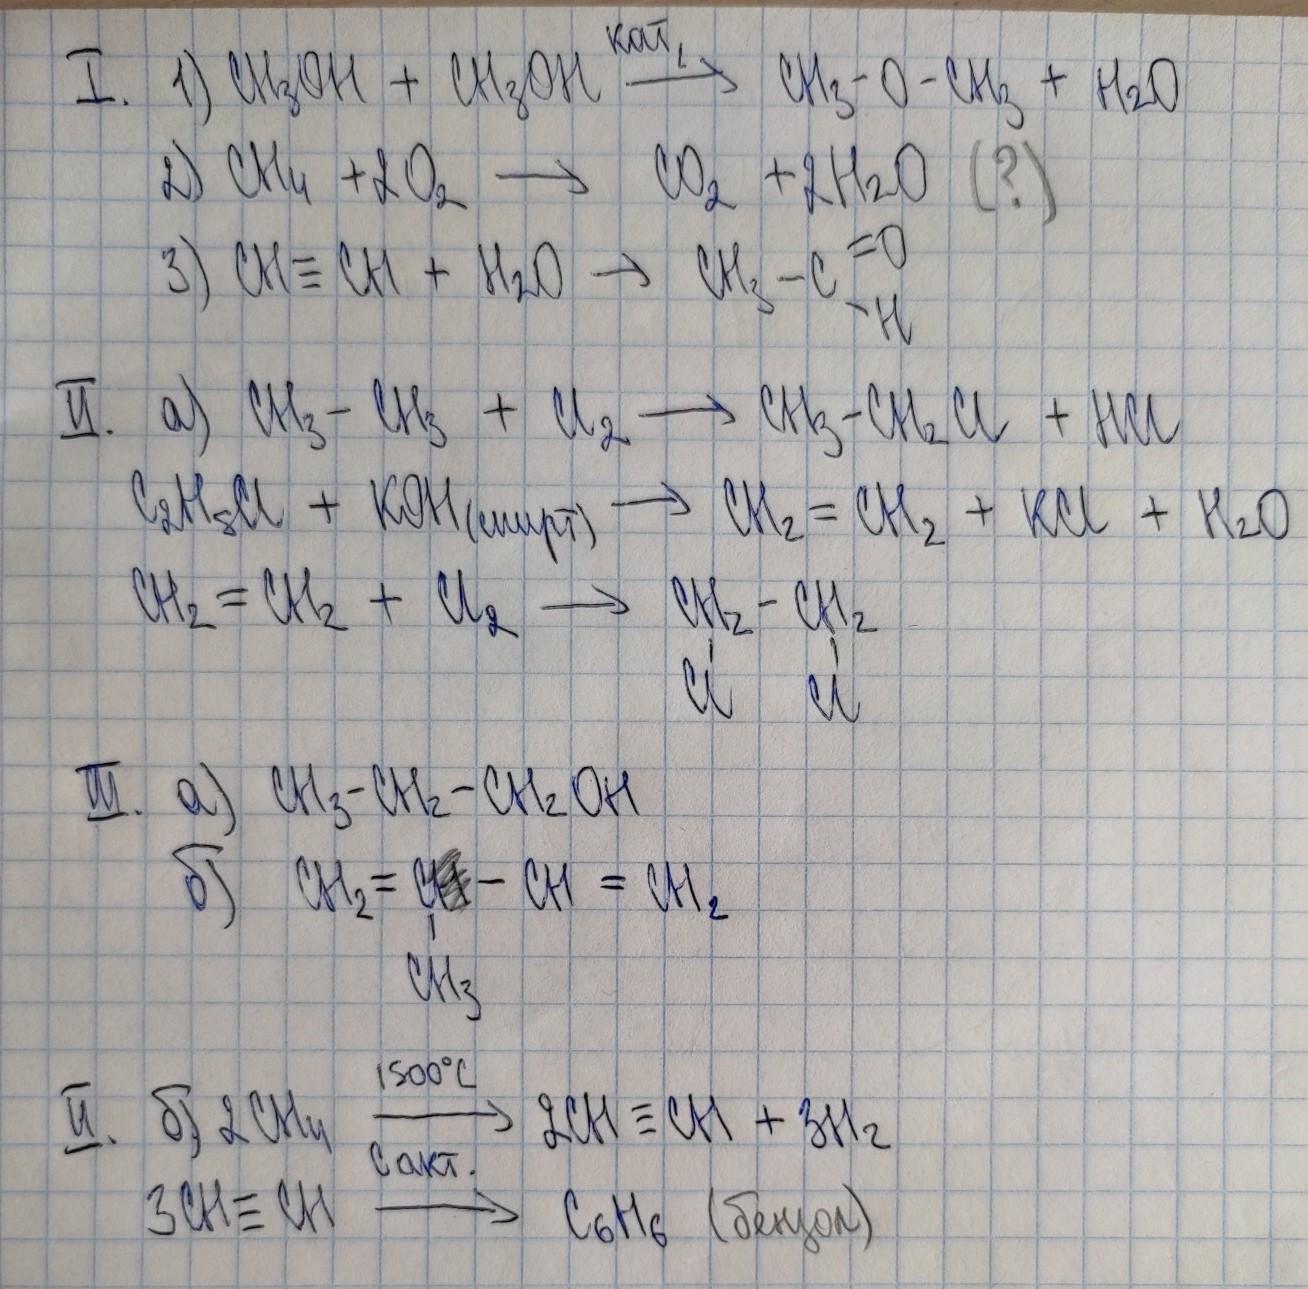 I. 1) CH₃OH + CH₃OH кат. → CH₃-O-CH₃ + H₂O
2) CH₄ + 2O₂ → CO₂ + 2H₂O (?)
3) CH≡CH + H₂O → CH₃-C
=O
-H
II. а) CH₃-CH₃ + Cl₂ → CH₃-CH₂Cl + HCl
C₂H₅Cl + KOH(спирт) → CH₂=CH₂ + KCl + H₂O
CH₂=CH₂ + Cl₂ → CH₂-CH₂
Cl Cl
III. а) CH₃-CH₂-CH₂OH
б) CH₂=C-CH=CH₂
CH₃
1500°C
II. б) 2CH₄ → 2CH≡CH + 3H₂
C акт.
3CH≡CH → C₆H₆ (бензол)